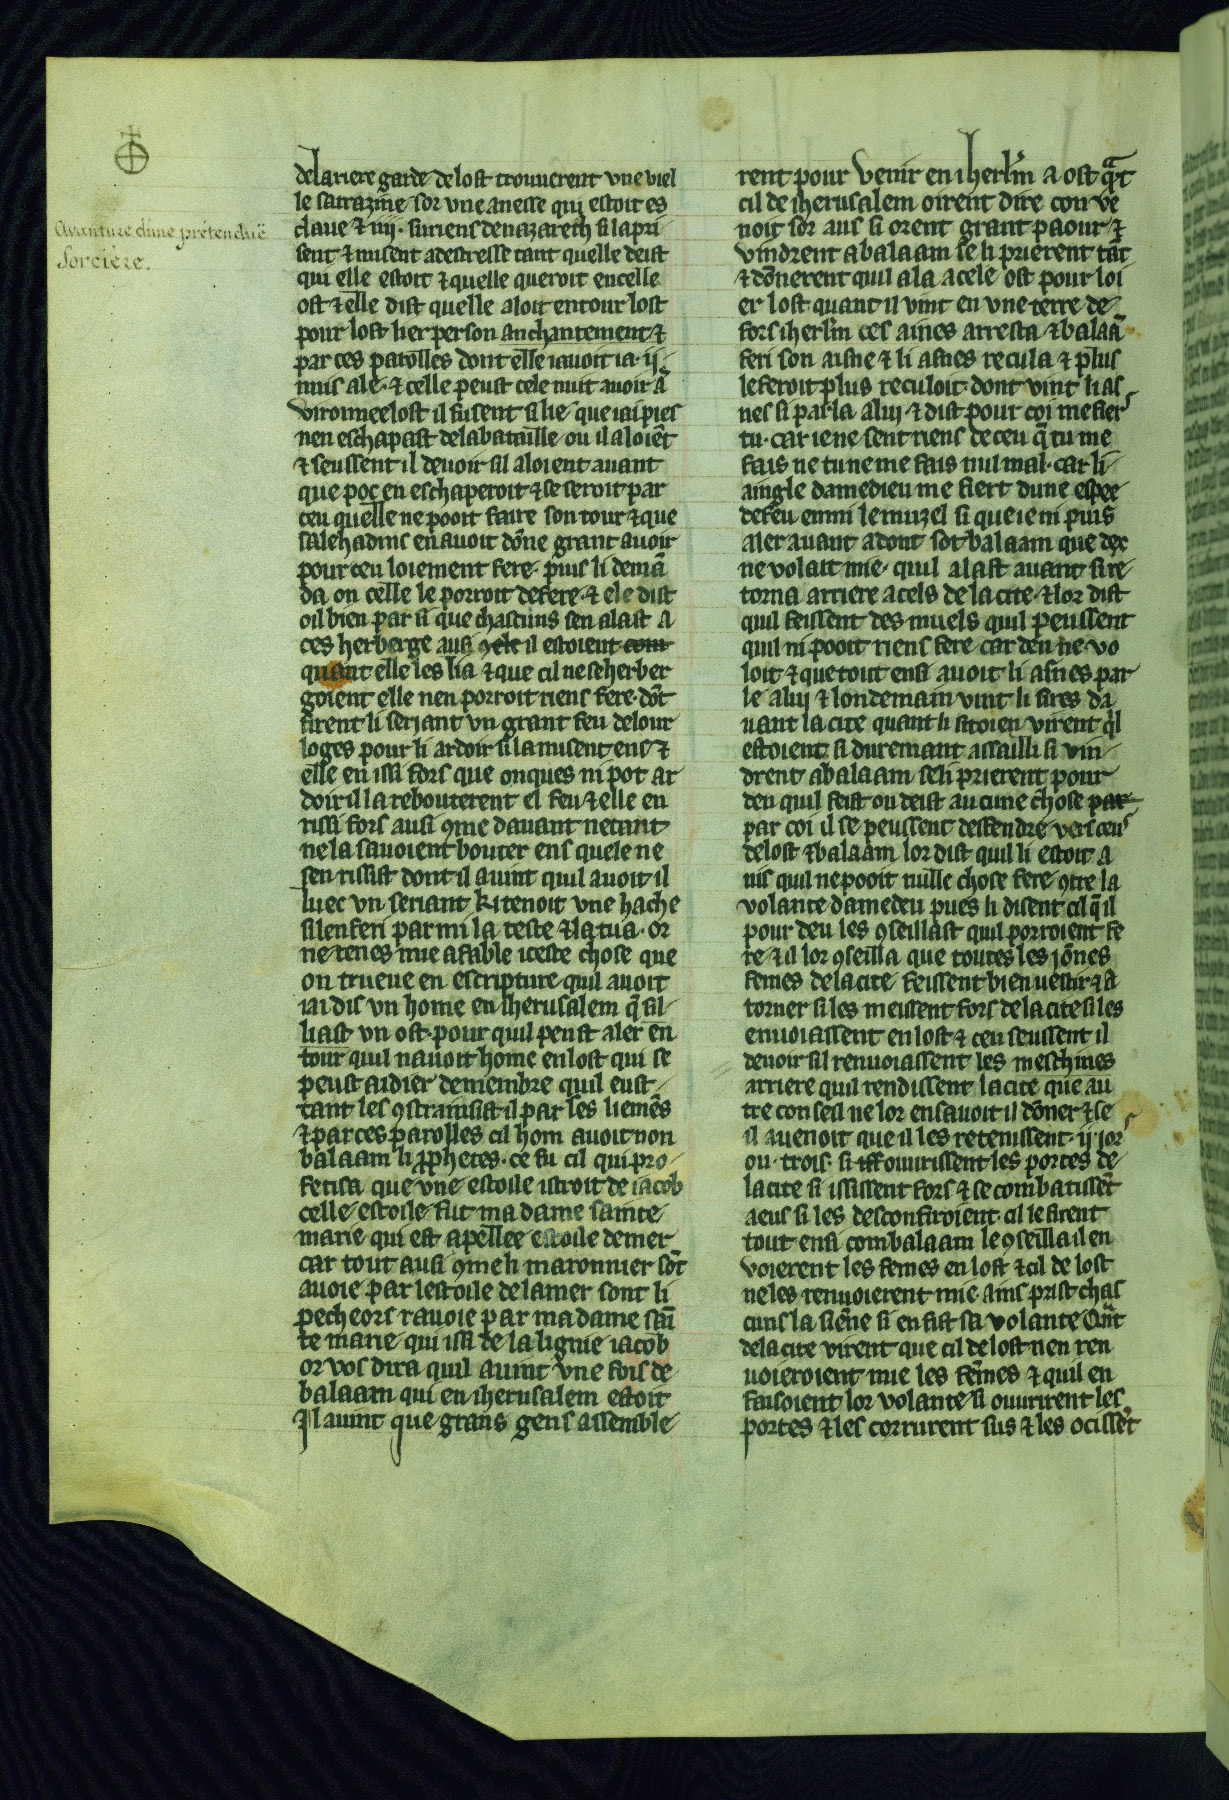 Avanture d'une prétenduë
Sorciere.
de lariere garde de lost trouuerent vne viel
le sarrazine sor vne anesse qui estoit es
claue & iiij. suriens de nazareth si la pri
sent & misent a destresse tant quelle deist
qui elle estoit & quelle queroit en celle
ost & elle dist quelle aloit entour lost
pour lost lier per son anchantement &
par ces parolles dont elle i auoit ia .ij.
nuis ale. & celle peust cele nuit auoir ā
vironnee lost il fusent si lie que iai pies
nen eschapast de la bataille ou il aloiēt
& seussent il deuoir sil aloient auant
que poc en eschaperoit & se seroit par
ceu quelle ne pooit faire son tour & que
salehadins en auoit dōne grant auoir
pour ceu loiement fere. puis li demā
da on celle le porroit desere. & ele dist
oil bien par si que chascuns sen alast a
ces herberge ausi 9 il estoient
quant elle les lia & que cil ne seherber
goient elle nen porroit riens fere. dōt
firent li serjant vn grant feu de lour
loges pour li ardoir si la misent ens &
elle en issi fors que onques ni pot ar
doir il la rebouterent el feu & elle en
rissi fors ausi 9me dauant ne tant
ne la sauoient bouter ens quele ne
sen rissist dont il auint quil auoit il
luec vn seriant ki tenoit vne hache
si len feri parmi la teste & la tua. or
ne tenes mie a fable iceste chose que
on trueue en escripture quil auoit
iai dis vn home en iherusalem q̄ sil
liast vn ost. pour quil peust aler en
tour quil nauoit home en lost qui se
peust aidier de membre quil eust
tant les 9strainsist il par ses liemēs
& par ces parolles cil hom auoit non
balaam li pphetes. ce fu cil qui pro
fetisa que vne estoile istroit de iacob
celle estoile fut ma dame sainte
marie qui est apellee estoile de mer
car tout ausi 9me li maronnier sōt
auoie par lestoile de la mer sont li
pecheors rauoie par ma dame sai
te marie qui issi de la lignie iacob
or vos dira quil auint vne fois de
balaam qui en iherusalem estoit
Il auint que grans gens assemble
rent pour venir en iherlm̄ a ost qāt
cil de iherusalem oirent dire con ve
noit sor aus si orent grant paour &
vindrent a balaam se li prierent tāt
& dōnerent quil ala a cele ost pour loi
er lost quant il vint en vne terre de
fors iherlm̄ ces aines arresta & balaā
feri son aisne & li asnes recula & plus
le feroit plus reculoit. dont vint li as
nes si parla a luj & dist pour coi me fiers
tu. car ie ne sent riens de ceu q̄ tu me
fais ne tu ne me fais nul mal. car li
aingle damedieu me fiert dune espee
de feu enmi le muzel si que ie ni puis
aler auant adont sot balaam que dex
ne volait mie. quil alast auant si re
torna arriere a cels de la cite. & lor dist
quil feissent des muels quil peussent
quil ni pooit riens fere car den ne vo
loit & que tout ensi auoit li asnes par
le a luj & londemain vint li sires da
uant la cite quant li sitoien virent ql
estoient si durement assailli si vin
drent a balaam se li prierent pour
deu quil feist ou deist aucune chose par
par coi il se peussent deffendre vers ceus
de lost & balaam lor dist quil li estoit a
uis quil ne pooit nulle chose fere 9tre la
volante damedeu pues li disent cil q̄ il
pour deu les 9seillast quil porroient fe
re & il lor 9seilla que toutes les jōnes
femes de la cite feissent bien vestir & a
torner si les meissent fors de la cite si les
enuoiassent en lost & ceu seussent il
deuoir sil renuoiassent les meschines
arriere quil rendissent la cite que au
tre conseil ne lor en sauoit il dōner & se
il auenoit que il les retenissent .ij. jors
ou trois. si ouurissent les portes de
la cite si ississent fors & se combatissēt
a eus si les desconfiroient cil le firent
tout ensi com balaam le 9seilla il en
voierent les femes en lost & cil de lost
ne les renuoierent mie ains prist chas
cuns la siēne si en fist sa volante Qāt
de la cite virent que cil de lost nen ren
uoieroient mie les femes & quil en
faisoient lor volante si ouurirent les
portes & les corrurent sus & les ocissēt